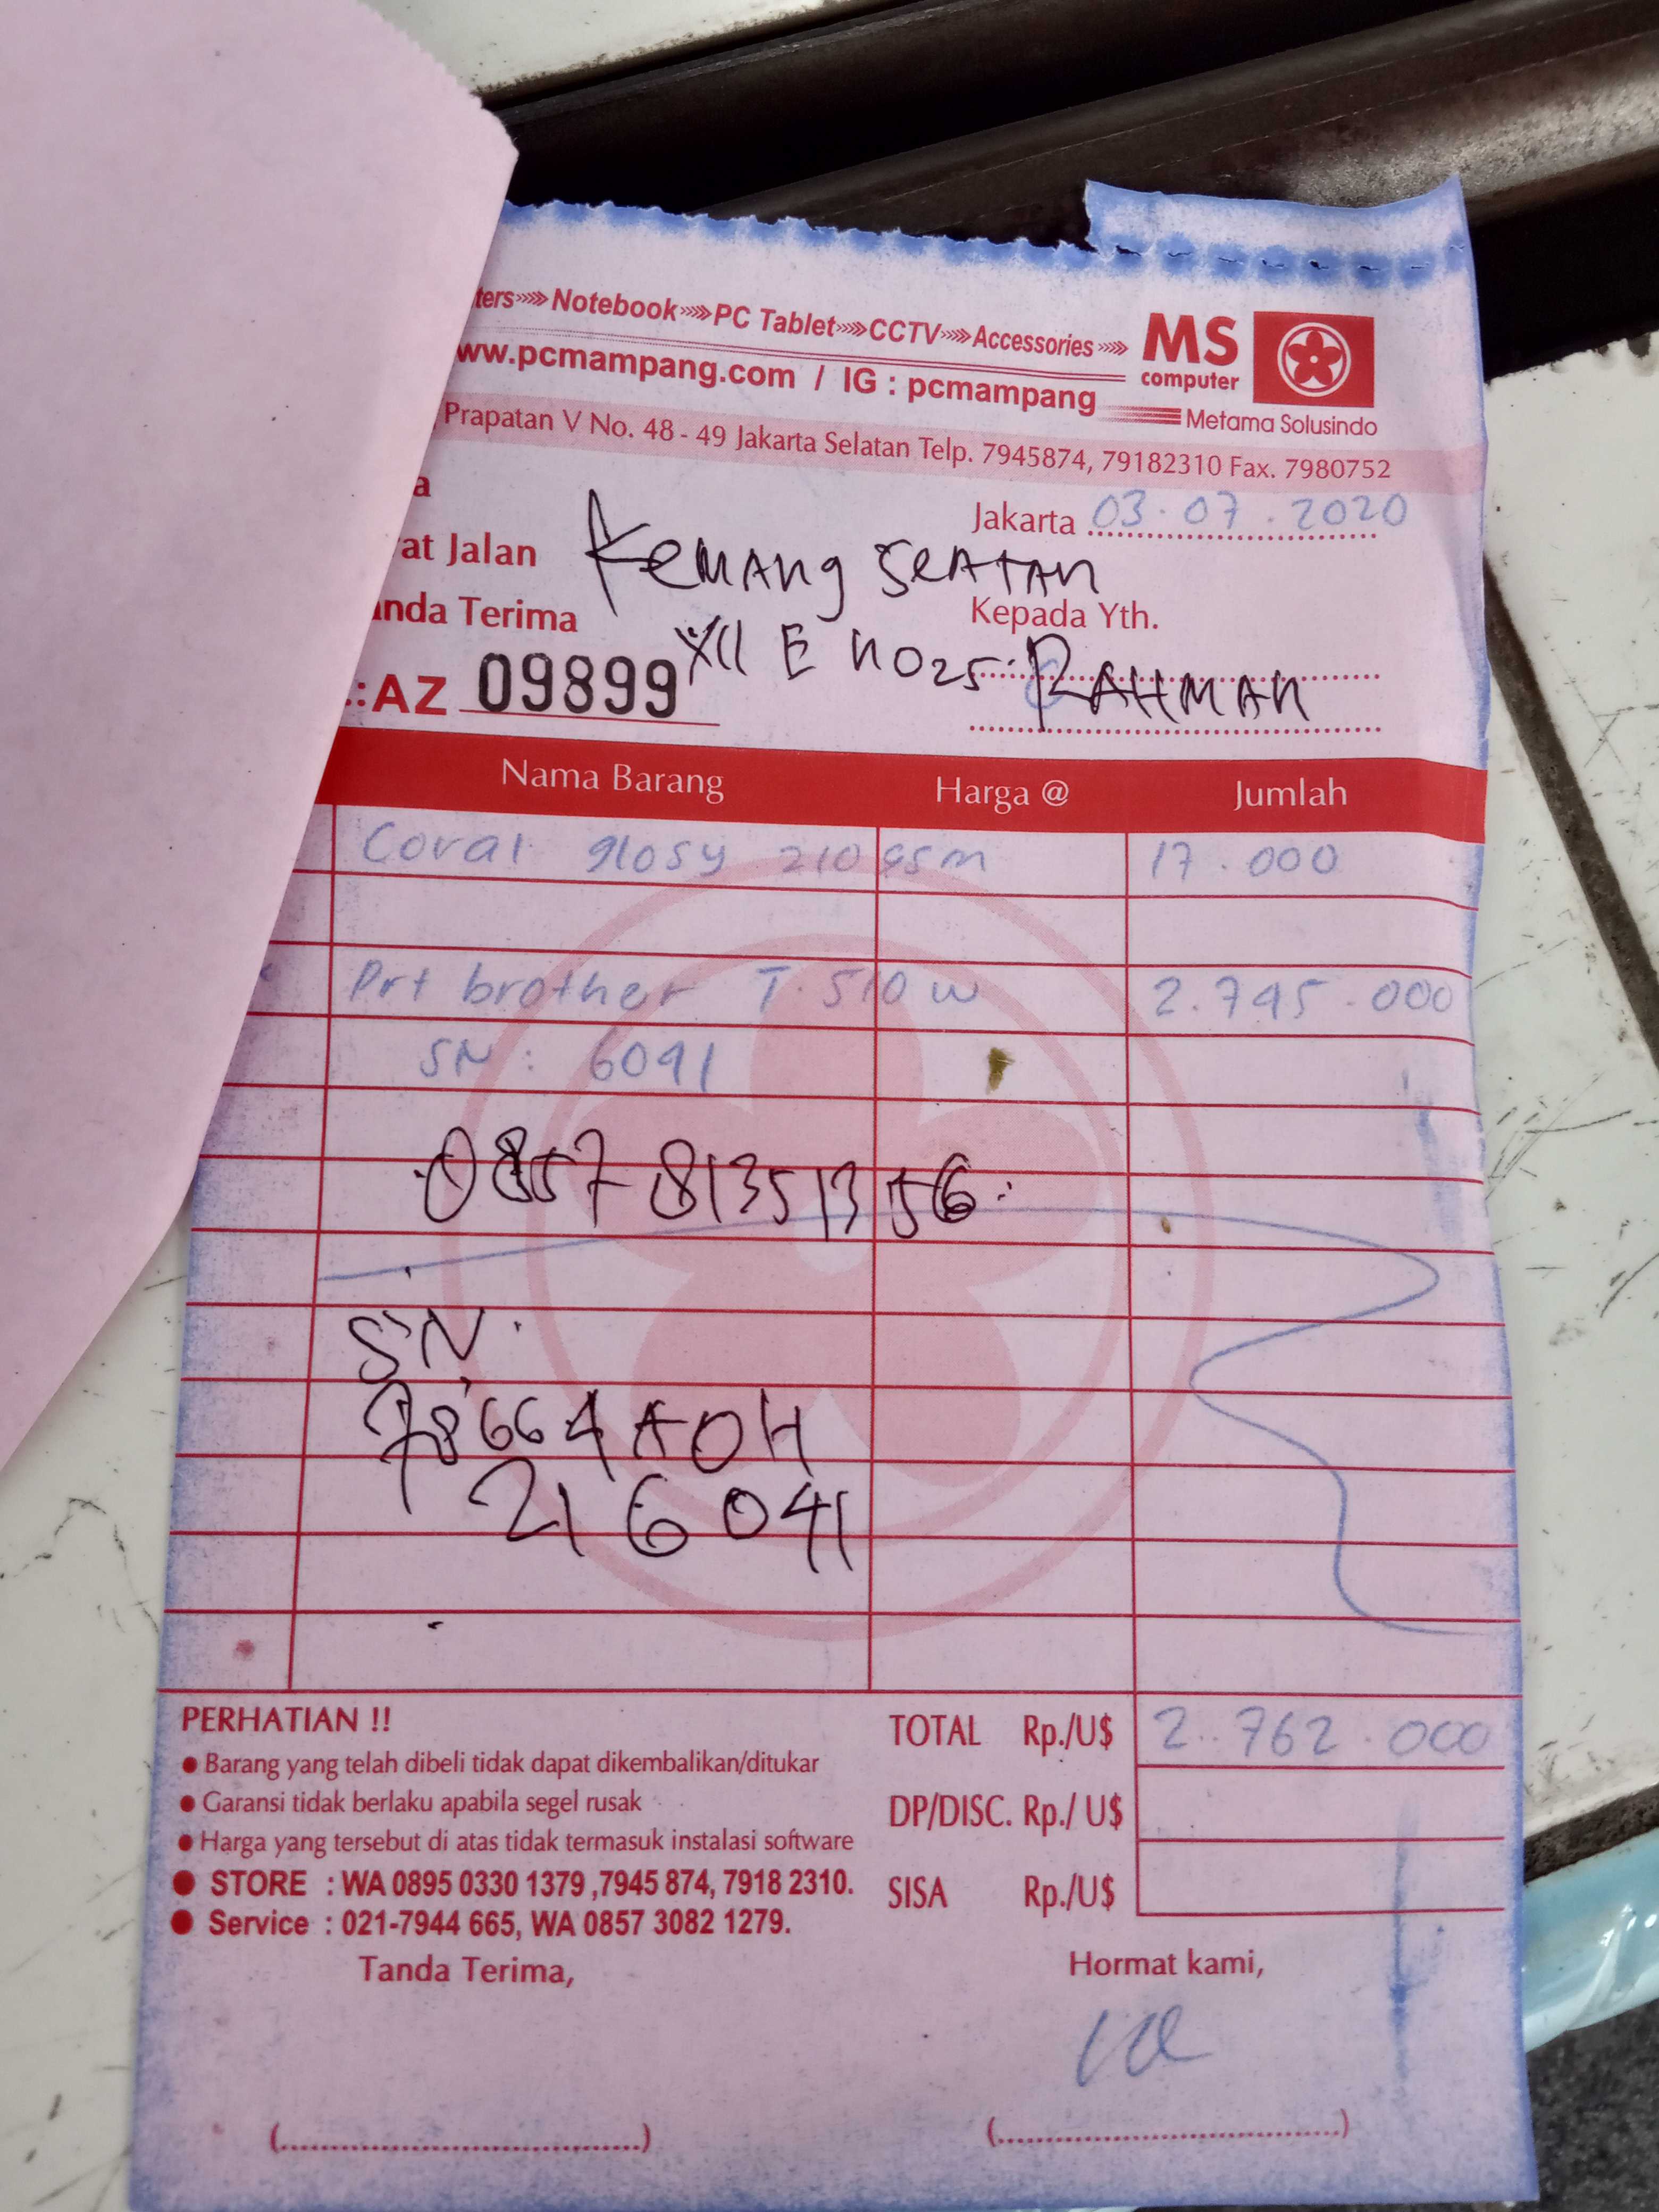 ters »»» Notebook »»» PC Tablet »»» CCTV »»» Accessories »»»
MS
computer
ww.pcmampang.com / IG : pcmampang
Metama Solusindo
Prapatan V No. 48 - 49 Jakarta Selatan Telp. 7945874, 79182310 Fax. 7980752
a
Jakarta 03.07.2020
at Jalan
Kemang Seatan
anda Terima
Kepada Yth.
XII E no 25
RAHMAN
:AZ 09899
Nama Barang Harga @ Jumlah
Coral glosy 210 gsm 17.000
Prt brother T.510 w 2.745.000
SN : 6041
0857 81351356
SN.
78664A0H
216041
PERHATIAN !!
TOTAL Rp./U$ 2.762.000
• Barang yang telah dibeli tidak dapat dikembalikan/ditukar
• Garansi tidak berlaku apabila segel rusak
DP/DISC. Rp./ U$
• Harga yang tersebut di atas tidak termasuk instalasi software
• STORE : WA 0895 0330 1379 ,7945 874, 7918 2310.
SISA Rp./U$
• Service : 021-7944 665, WA 0857 3082 1279.
Tanda Terima,
Hormat kami,